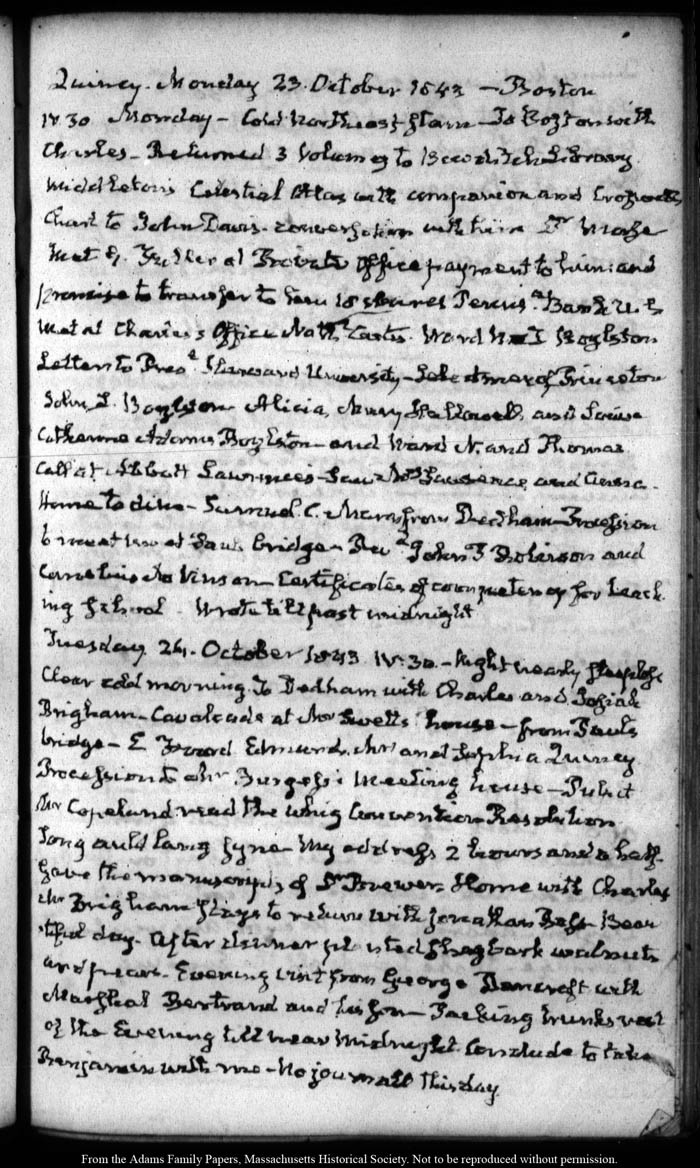 Quincy. Monday 23. October 1843 — Boston
IV.30 Monday — Cold Northeast storm — To Boston with
Charles — Returned 3 Volumes to Bowditch Library
Middleton's Celestial Atlas with companion and
Chart to John Davis. conversation with him Dr
Met Fuller at Probate Office payment to him and
promise to transfer to him 18 shares Penns.a Bank U.S
Met at Charles's Office Nath.l Curtis. Ward N I Boylston
Letter to Pres.t Harvard University — of Princeton
John L. Boylston Alicia, Mary Hallowell and Louisa
Catherine Adams Boylston — and Ward N. and Thomas
Call at Abbott Lawrence's — Saw Mrs Lawrence and
Home to dine — Samuel C. Mann from Dedham — Procession
to meet me at Pauls bridge — Rev.d John P Robinson and
Cornelius — Certificates of competency for teach
ing School. Wrote till past midnight
Tuesday 24. October 1843 IV:30. — Night nearly sleepless
Clear cold morning. To Dedham with Charles and Josiah
Brigham — Cavalcade at Mr Swetts house — from Pauls
bridge — E Edmund, Mr and Sophia Quincy
Procession to Mr Burgess's Meeting house — Pulpit
Mr Copeland read the Whig Convention Resolution
Song auld lang syne — My address 2 hours and a half
gave the manuscript of Dr Brewer. Home with Charles
Mr Brigham stays to return with Jonathan Bass. Beau
tiful day. After dinner planted shagbark walnuts
and pears. Evening visit from George Bancroft with
Marshal Bertrand and his son — Packing trunks rest
of the Evening till near Midnight. Conclude to take
Benjamin with me — No journal this day
From the Adams Family Papers, Massachusetts Historical Society. Not to be reproduced without permission.